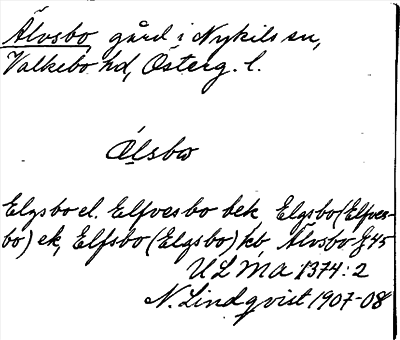 Älvsbo gård i Nykils sn,
Valkebo hd, Österg. l.
Œlsbω
Elgsbo el. Elfvesbo bek, Elgsbo (Elfves-
bo) ek, Elfsbo (Elgsbo) kb Älvsbo J45
ULMA 1374:2
N. Lindqvist 1907-08